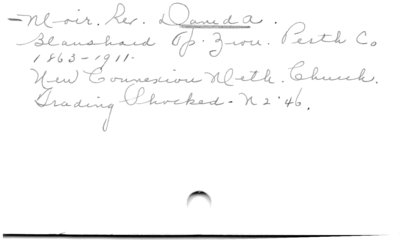 - Moir. Rev. David A.
Blanshard Tp. Zion. Perth Co
1863-1911.
New Connexion Meth. Church.
N2.46.